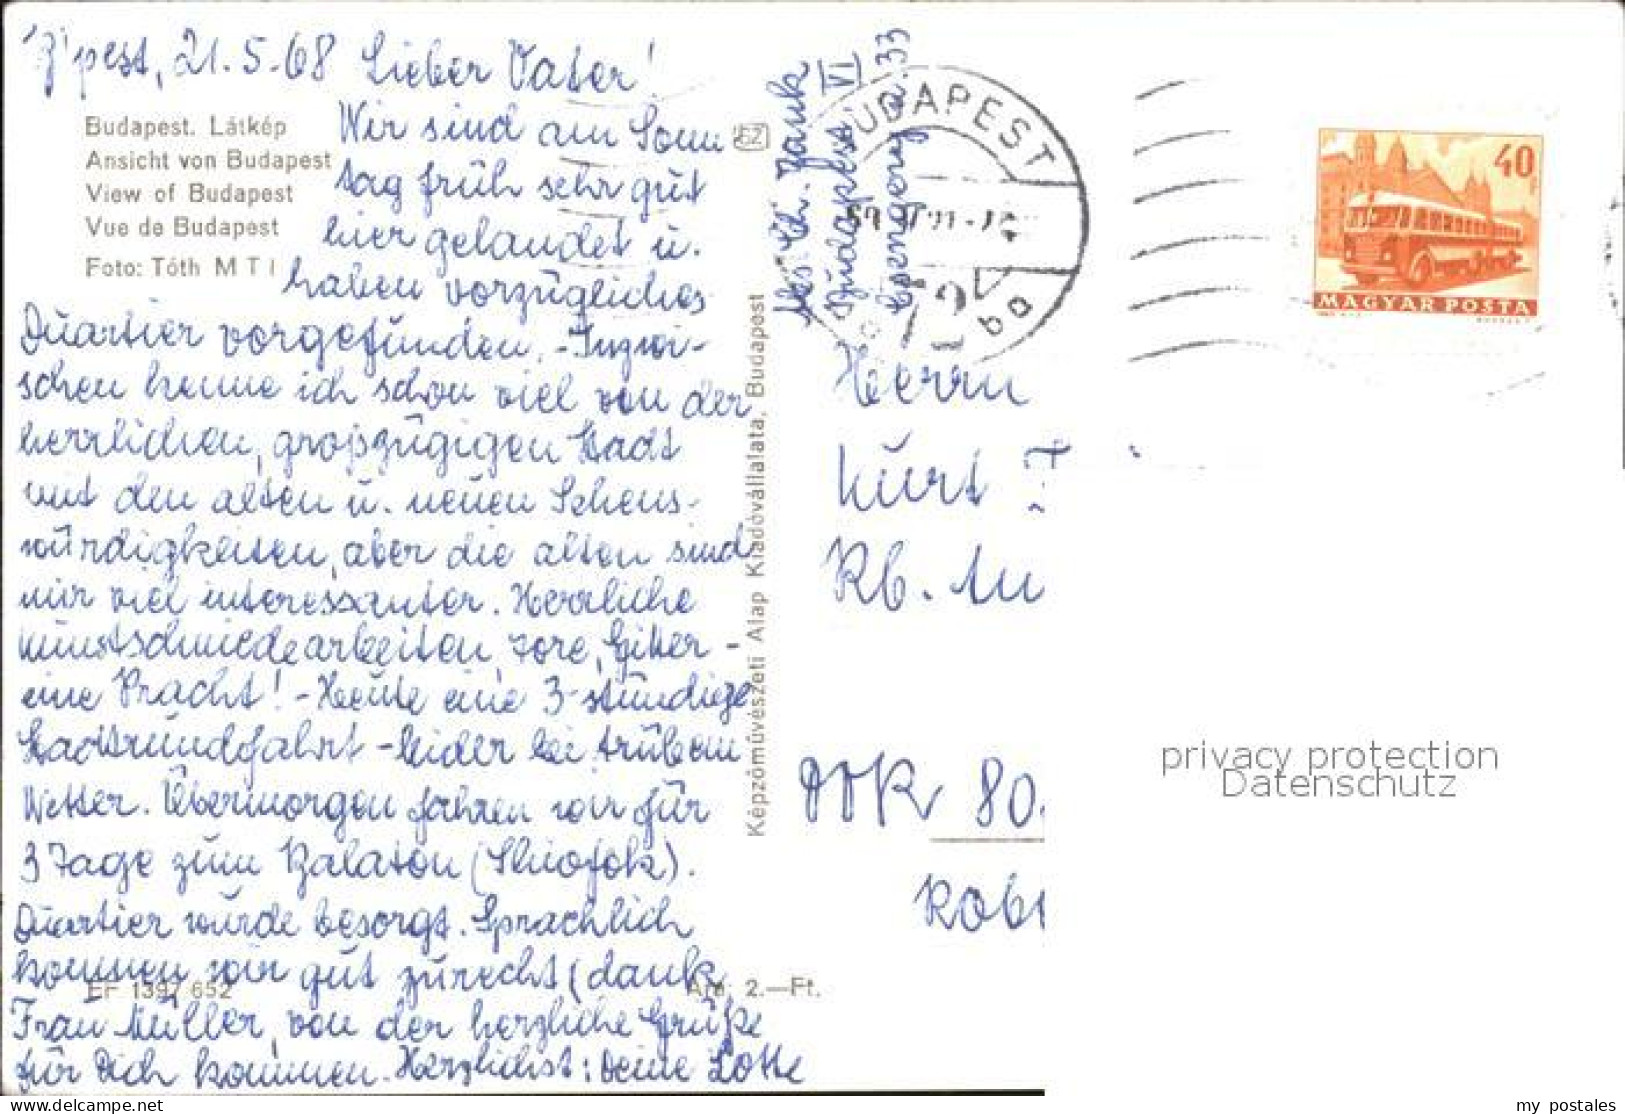 B'pest, 21.5.68 Lieber Vater!
Budapest. Látkép
Ansicht von Budapest
View of Budapest
Vue de Budapest
Foto: Tóth M T I
Wir sind am Sonn
tag früh sehr gut
hier gelandet u.
haben vorzügliches
Quartier vorgefunden. - Inzwi-
schen kenne ich schon viel von der
herrlichen, großzügigen Stadt
mit den alten u. neuen Sehens-
würdigkeiten, aber die alten sind
mir viel interessanter. Herrliche
Kunstschmiedearbeiten, Tore, Gitter -
eine Pracht! - Heute eine 3-stündige
Stadtrundfahrt - leider bei trübem
Wetter. Übermorgen fahren wir für
3 Tage zum Balaton (Shiofok).
Quartier wurde besorgt. Sprachlich
kommen wir gut zurecht (dank
Frau Müller, von der herzliche Grüße
für Dich kommen. Herzlichst: Deine Lotte
EF 1397 652
Ára: 2.—Ft.
Képzőművészeti Alap Kiadóvállalata, Budapest
Budapest VI
Csengery u. 33
BUDAPEST
Herrn
Kurt
DDR 80
40
MAGYAR POSTA
privacy protection
Datenschutz
my postales
delcampe.net